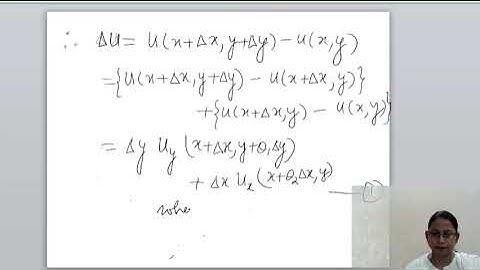 ∴ ΔU = U(x+Δx, y+Δy) − U(x,y)
= {U(x+Δx, y+Δy) − U(x+Δx, y)}
+ {U(x+Δx, y) − U(x,y)}
= Δy U_y (x+Δx, y+θ₁Δy)
+ Δx U_x (x+θ₂Δx, y) —— ①
whe